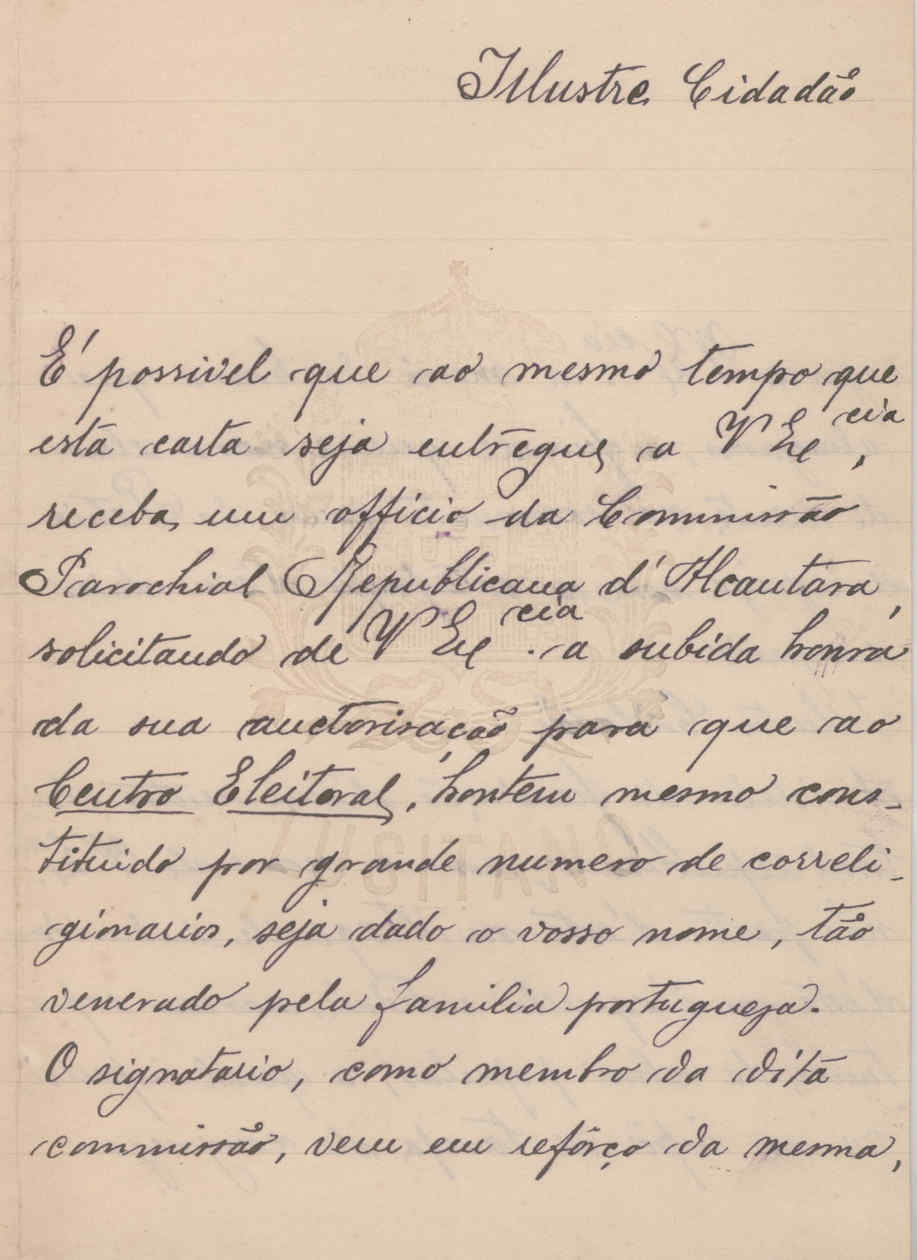 Illustre Cidadão
É possivel que ao mesmo tempo que
esta carta seja entregue a V Ex cia,
receba um officio da Commissão
Parochial Republicana d'Alcantara,
solicitando de V Ex cia. a subida honra
da sua auctorisação para que ao
Centro Eleitoral, hontem mesmo cons-
tituido por grande numero de correli-
gionarios, seja dado o vosso nome, tão
venerado pela familia portugueza.
O signatario, como membro da dita
commissão, vem em refôrço da mesma,
LUSITANO